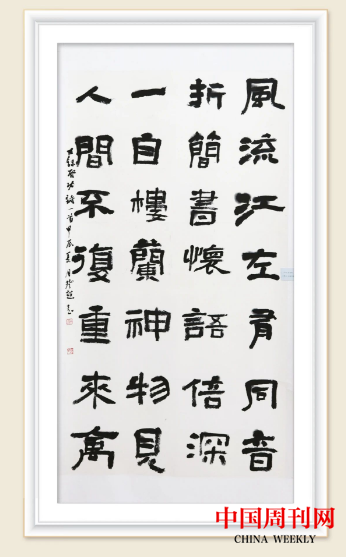 風流江左有同音
折簡書懷語倍深
一自樓蘭神物見
人間不復重來禽
啓功詩一首甲辰夏月
中国周刊网
CHINA WEEKLY